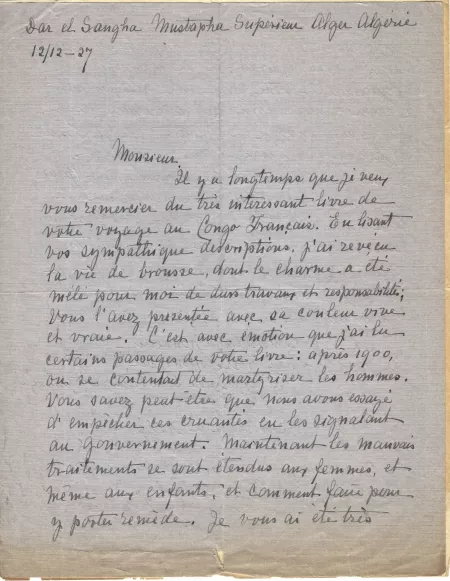 Dar el Sangha Mustapha Supérieur Alger Algérie
12/12-27
Monsieur,
Il y a longtemps que je veux
vous remercier du très intéressant livre de
votre voyage au Congo Français. En lisant
vos sympathique descriptions, j'ai revécu
la vie de brousse, dont le charme a été
mêlé pour moi de durs travaux et responsabilité;
Vous l'avez présentée avec sa couleur vive
et vraie. C'est avec émotion que j'ai lu
certains passages de votre livre: après 1900,
on se contentait de martyriser les hommes.
Vous savez peut-être que nous avons essayé
d'empêcher ces cruautés en les signalant
au Gouvernement. Maintenant les mauvais
traitements se sont étendus aux femmes, et
même aux enfants, et comment faire pour
y porter remède. Je vous ai été très